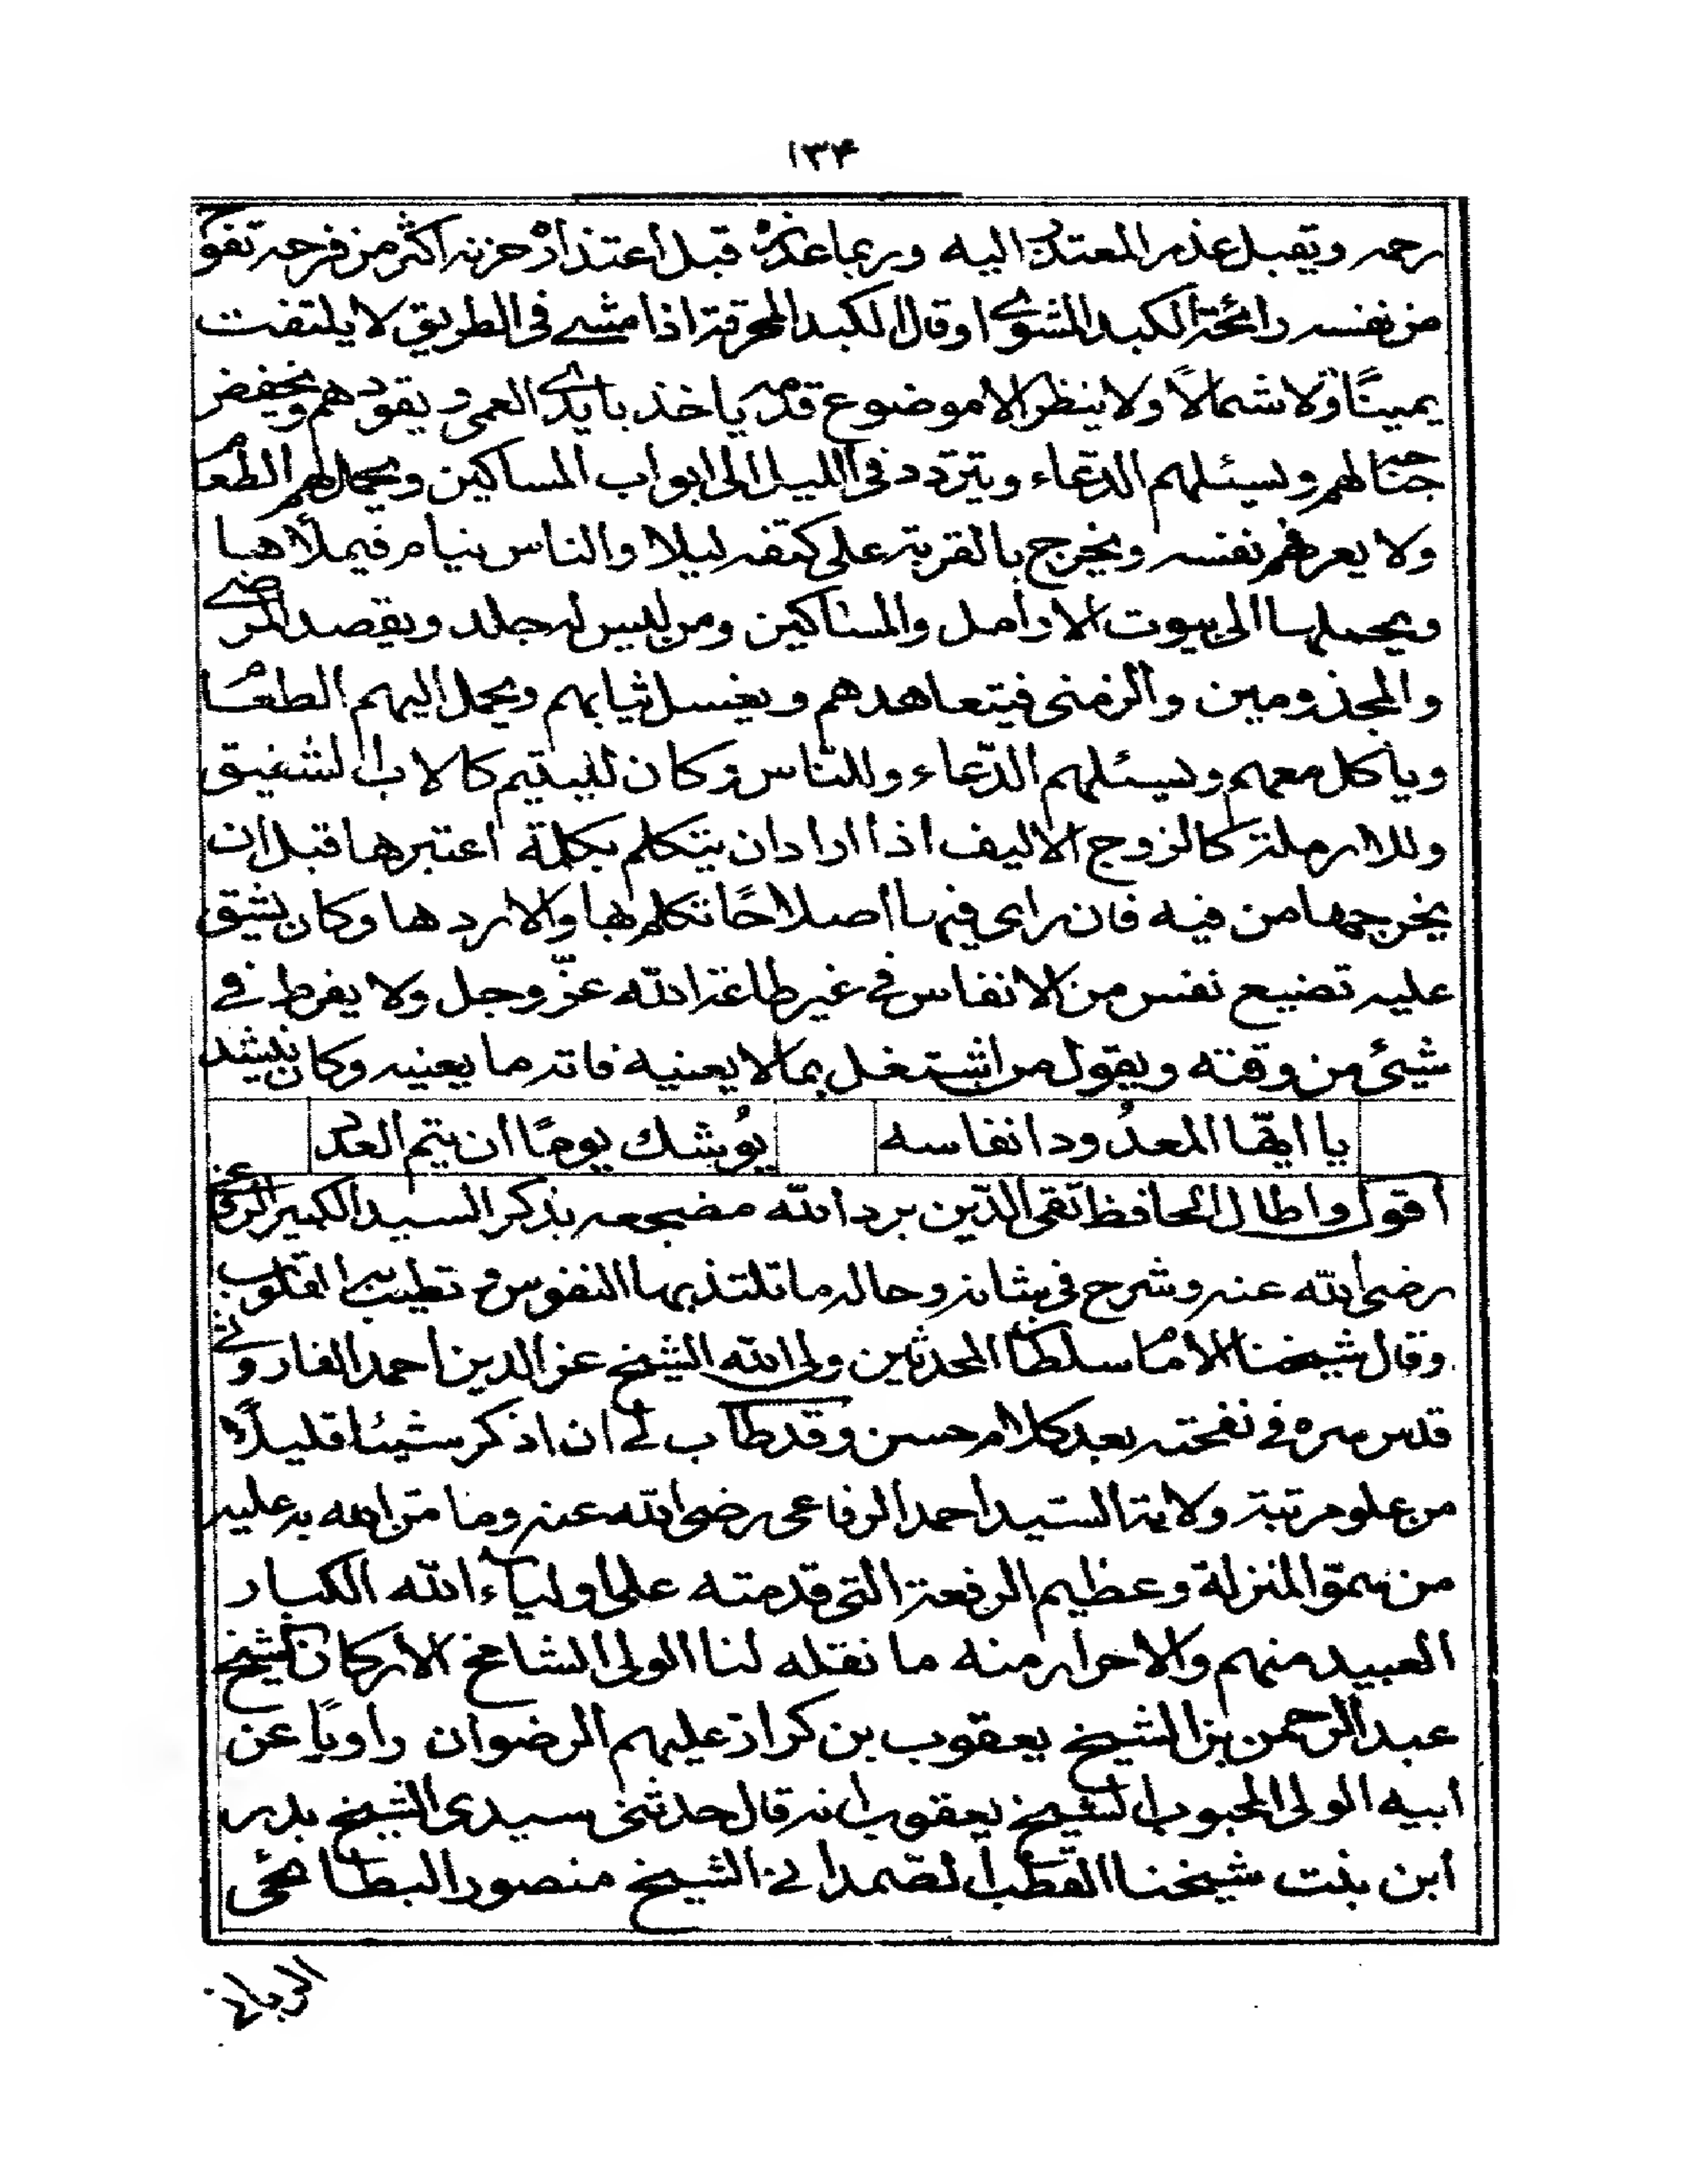 ١٣٤
رحمه ويقبل عذر المعتذر اليه وربما عذره قبل اعتذاره حزنه اكثر من فرحه تفوح
من نفسه رائحة الكبد المشوى او قال الكبد المحرقة اذا مشى فى الطريق لا يلتفت
يمينًا ولا شمالاً ولا ينظر الا موضوع قدمه ياخذ بايدى العمى ويقودهم ويخفض
جناحه لهم ويسئلهم الدّعاء ويتردد فى الليل الى ابواب المساكين ويحمل لهم الطعام
ولا يعرفهم نفسه ويخرج بالقربة على كتفه ليلا والناس نيام فيملأها
ويحملها الى بيوت الارامل والمساكين ومن ليس له جلد ويقصد المرضى
والمجذومين والزمنى فيتعاهدهم ويغسل ثيابهم ويحمل اليهم الطعام
وياكل معهم ويسئلهم الدّعاء وللنّاس وكان لليتيم كالاب الشفيق
وللارملة كالزوج الاليف اذا اراد ان يتكلم بكلمة اعتبرها قبل ان
يخرجها من فيه فان راى فيها اصلاحًا تكلم بها والا ردها وكان يشق
عليه تضييع نفس من الانفاس فى غير طاعة الله عزّ وجل ولا يفرط فى
شيئ من وقته ويقول من اشتغل بما لا يعنيه فاته ما يعنيه وكان ينشد
يا ايّها المعدُود انفاسه يُوشك يومًا ان يتم العدد
اقول واطال الحافظ تقى الدّين برد الله مضجعه بذكر السيد الكبير الرفاعى
رضى الله عنه وشرح فى شانه وحاله ما تلتذ بها النفوس وتطيب به القلوب
وقال شيخنا الامام سلطان المحدثين ولى الله الشيخ عز الدين احمد الفاروثى
قدس سره فى نفحته بعد كلام حسن وقد طاب لى ان اذكر شيئا قليلاً
من علو مرتبة ولاية السّيد احمد الرفاعى رضى الله عنه وما منّ الله به عليه
من سموّ المنزلة وعظيم الرفعة التى قدمته على اولياء الله الكبار
العبيد منهم والاحرار منه ما نقله لنا الولى الشامخ الاركان الشيخ
عبد الرحمن بن الشيخ يعقوب بن كراز عليهم الرضوان راويًا عن
ابيه الولى المحبوب الشيخ يعقوب انه قال حدثنى سيدى الشيخ بدر
ابن بنت شيخنا القطب الصّمدانى الشيخ منصور البطائحى
الربانى